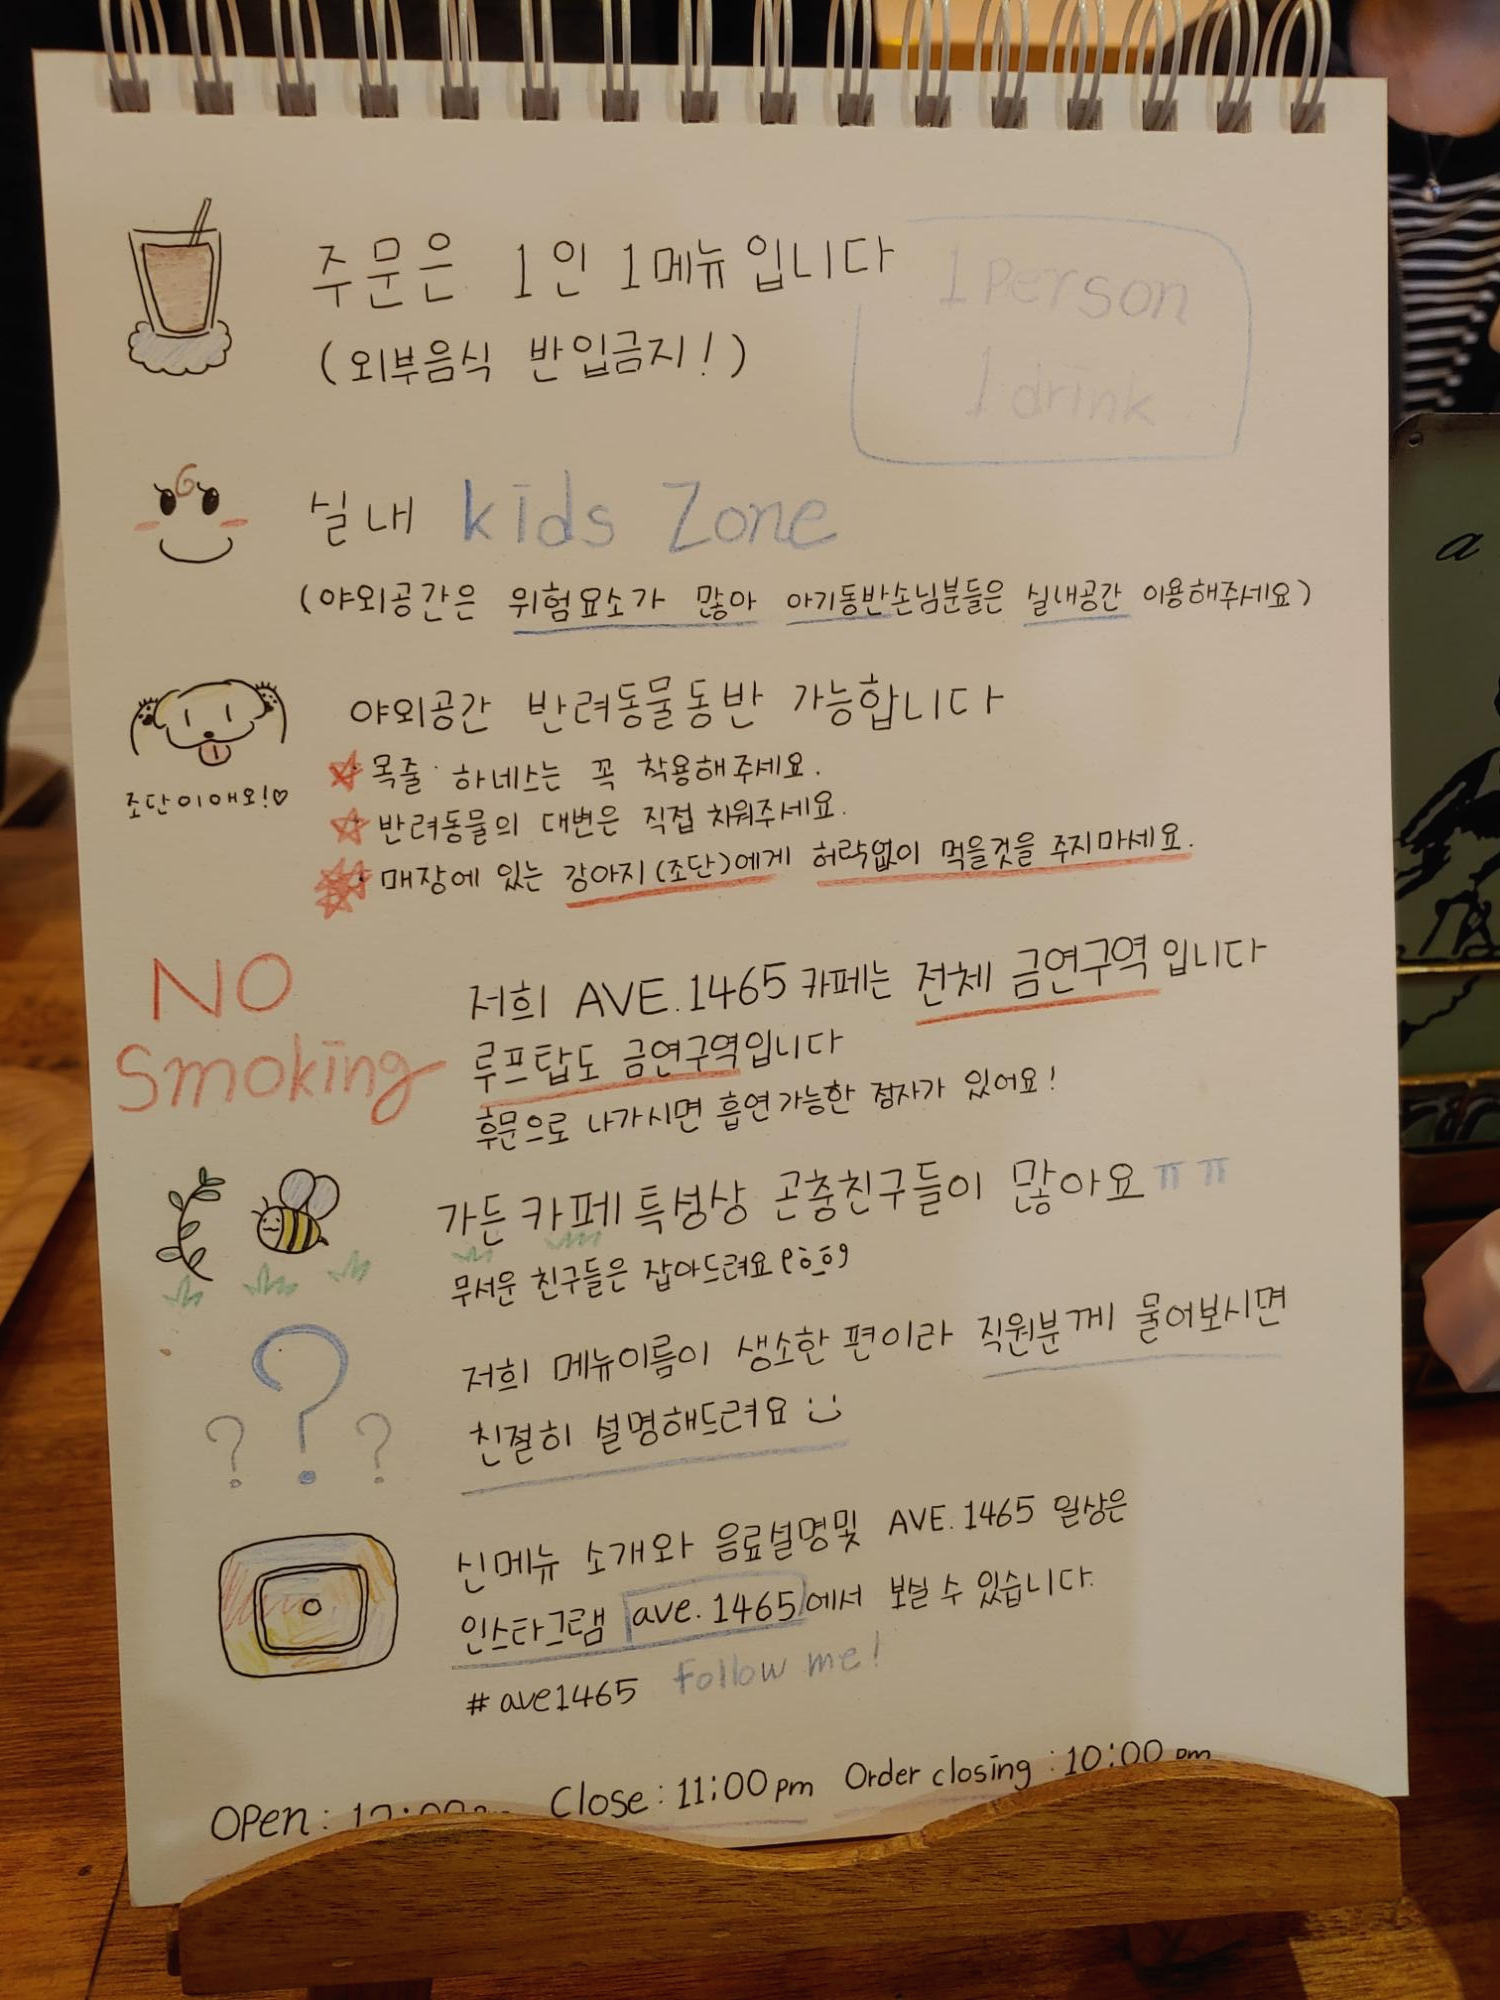 주문은 1인 1메뉴입니다
(외부음식 반입금지!)
1 Person
1 drink
실내 kids Zone
(야외공간은 위험요소가 많아 아기동반손님분들은 실내공간 이용해주세요)
야외공간 반려동물동반 가능합니다
조단이에요!♡
목줄·하네스는 꼭 착용해주세요.
반려동물의 대변은 직접 치워주세요.
매장에 있는 강아지(조단)에게 허락없이 먹을것을 주지마세요.
NO
Smoking
저희 AVE.1465 카페는 전체 금연구역입니다
루프탑도 금연구역입니다
후문으로 나가시면 흡연가능한 정자가 있어요!
가든 카페 특성상 곤충친구들이 많아요 ㅠㅠ
무서운 친구들은 잡아드려요
? ? ?
저희 메뉴이름이 생소한 편이라 직원분께 물어보시면
친절히 설명해드려요 :)
신메뉴 소개와 음료설명및 AVE.1465 일상은
인스타그램 ave.1465에서 보실 수 있습니다.
#ave1465 Follow me!
Open: Close: 11:00 pm Order closing: 10:00 pm